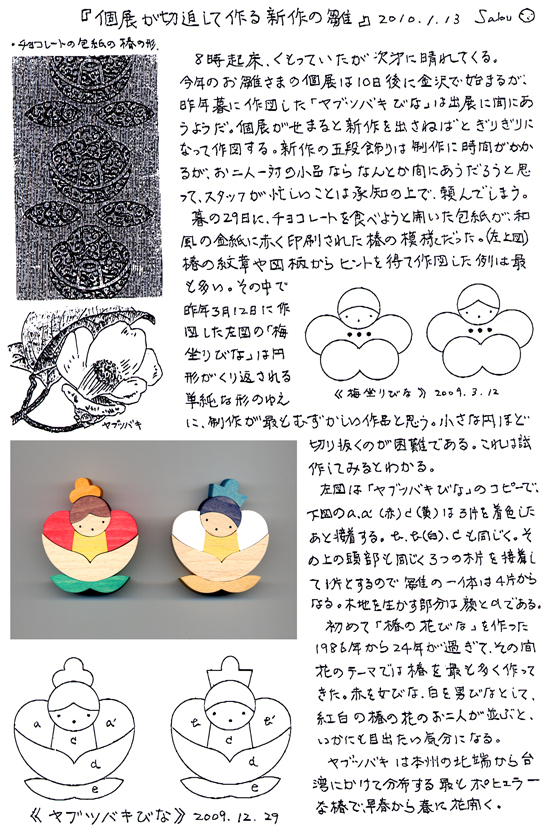 『個展が切迫して作る新作の雛』2010.1.13 Sabu
・チョコレートの包紙の椿の形.
8時起床、くもっていたが次才に晴れてくる。
今年のお雛さまの個展は10日後に金沢で始まるが、
昨年暮に作図した「ヤブツバキびな」は出展に間にあ
うようだ。個展がせまると新作を出さねばとぎりぎりに
なって作図する。新作の五段飾りは制作に時間がかか
るが、お二人一対の小品ならなんとか間にあうだろうと思
って、スタッフが忙しいことは承知の上で、頼んでしまう。
暮の29日に、チョコレートを食べようと開いた包紙が、和
風の金紙に赤く印刷された椿の模様だった。(左上図)
椿の紋章や図柄からヒントを得て作図した例は最
も多い。その中で
昨年3月12日に作
図した左図の「梅
坐りびな」は円
形がくり返される
単純な形のゆえ
に、制作が最もむずかしい作品と思う。小さな円ほど
切り抜くのが困難である。これは試
作してみるとわかる。
ヤブツバキ
《梅坐りびな》2009.3.12
左図は「ヤブツバキびな」のコピーで、
下図のa,a'(赤)c(黄)は3片を着色した
あと接着する。b,b'(白)、cも同じく。そ
の上の頭部も同じく3つの木片を接着し
て1片とするので雛の一体は4片から
なる。木地を生かす部分は顔とdである。
初めて「椿の花びな」を作った
1986年から24年が過ぎて、その間
花のテーマでは椿を最も多く作って
きた。赤を女びな、白を男びなとして、
紅白の椿の花のお二人が並ぶと、
いかにも目出たい気分になる。
ヤブツバキは本州の北端から台
湾にかけて分布する最もポピュラー
な椿で、早春から春に花開く。
a a' c d e
b b' c d e
《ヤブツバキびな》2009.12.29